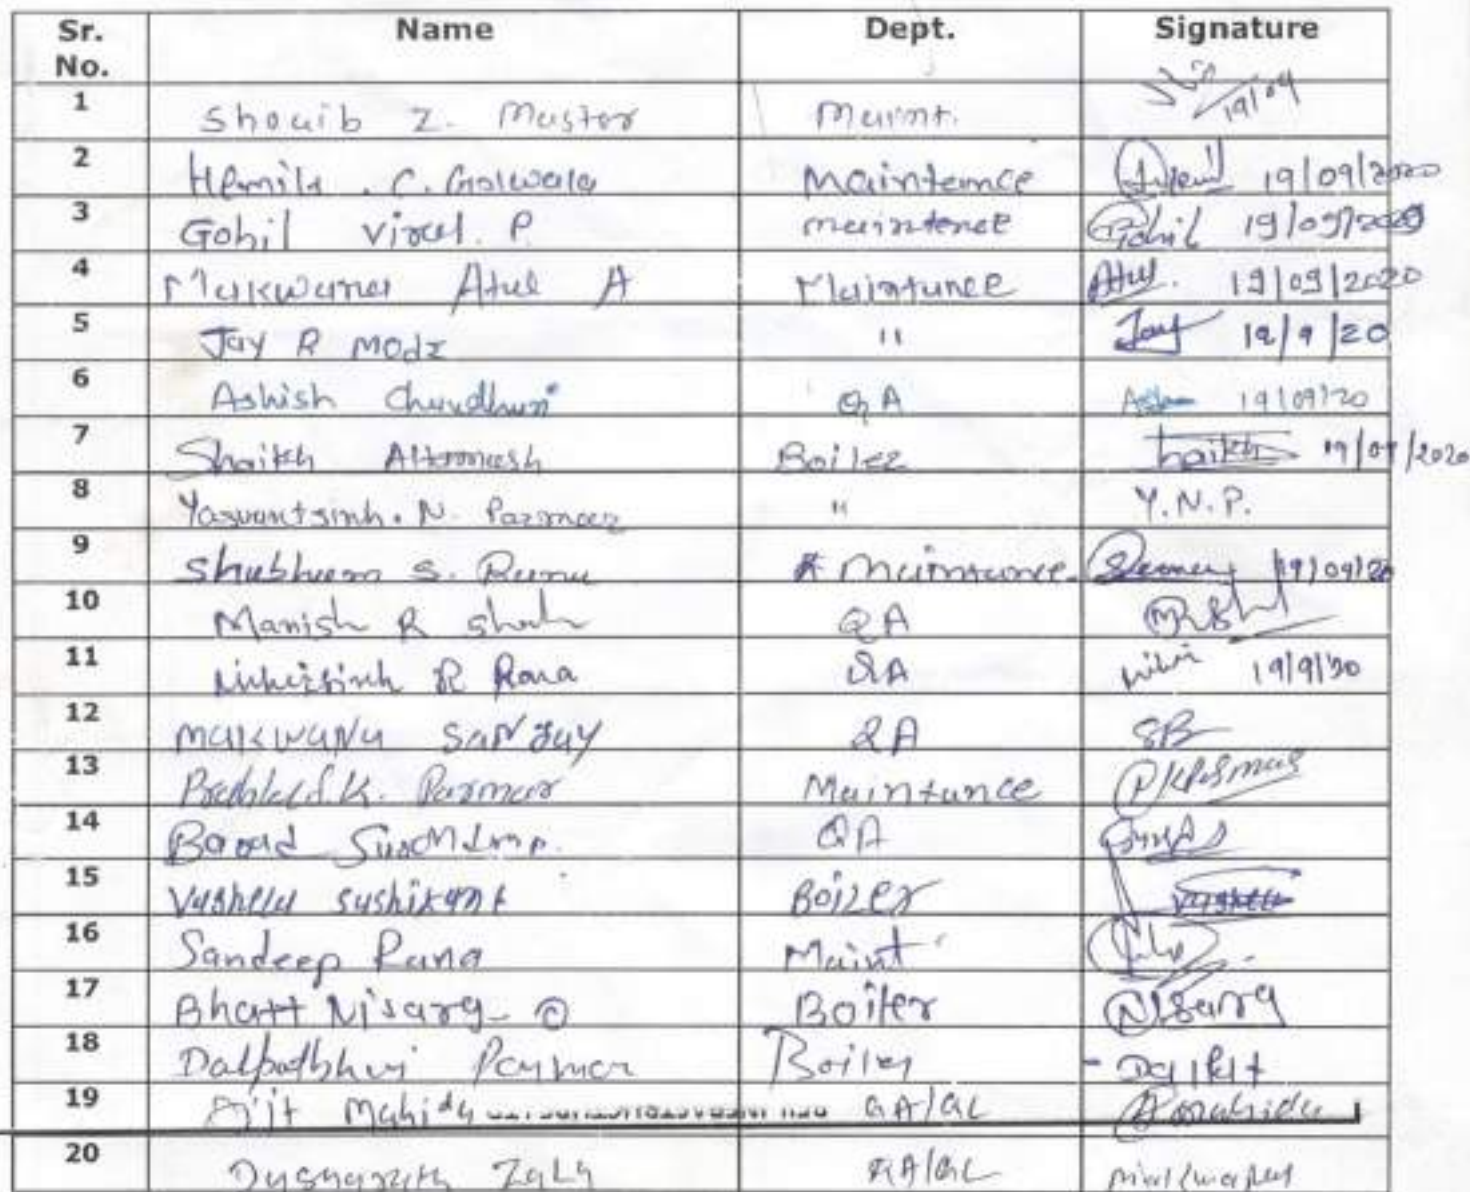 Sr. No. Name Dept. Signature
1 Shouib Z. Mustor Maint. 19/09
2 Hemila . C. Golwala Mainternce 19/09/2020
3 Gohil Viral. P. maintence Gohil 19/09/2020
4 Makwana Atul A Maintunce Atul. 19/09/2020
5 Jay R Modi " Jay 19/9/20
6 Ashish Chaudhuri QA Ash 19/09/20
7 Shaikh Altamash Boiler Shaikh 19/09/2020
8 Yasvantsinh. N. Parmar " Y.N.P.
9 Shubham S. Rana Maintunce. 19/09/20
10 Manish R shah QA
11 R Rana QA 19/9/20
12 MAKWANA SANJAY QA SB
13 K. Parmar Maintunce
14 Barad QA
15 Vaghela sushikant Boiler Vaghela
16 Sandeep Rana Maint
17 Bhatt Nisarg Boiler Nisarg
18 Dalpatbhai Parmar Boiler Dalpat
19 Ajit Mahida QA/QC Amahida
20 Zala QA/QC